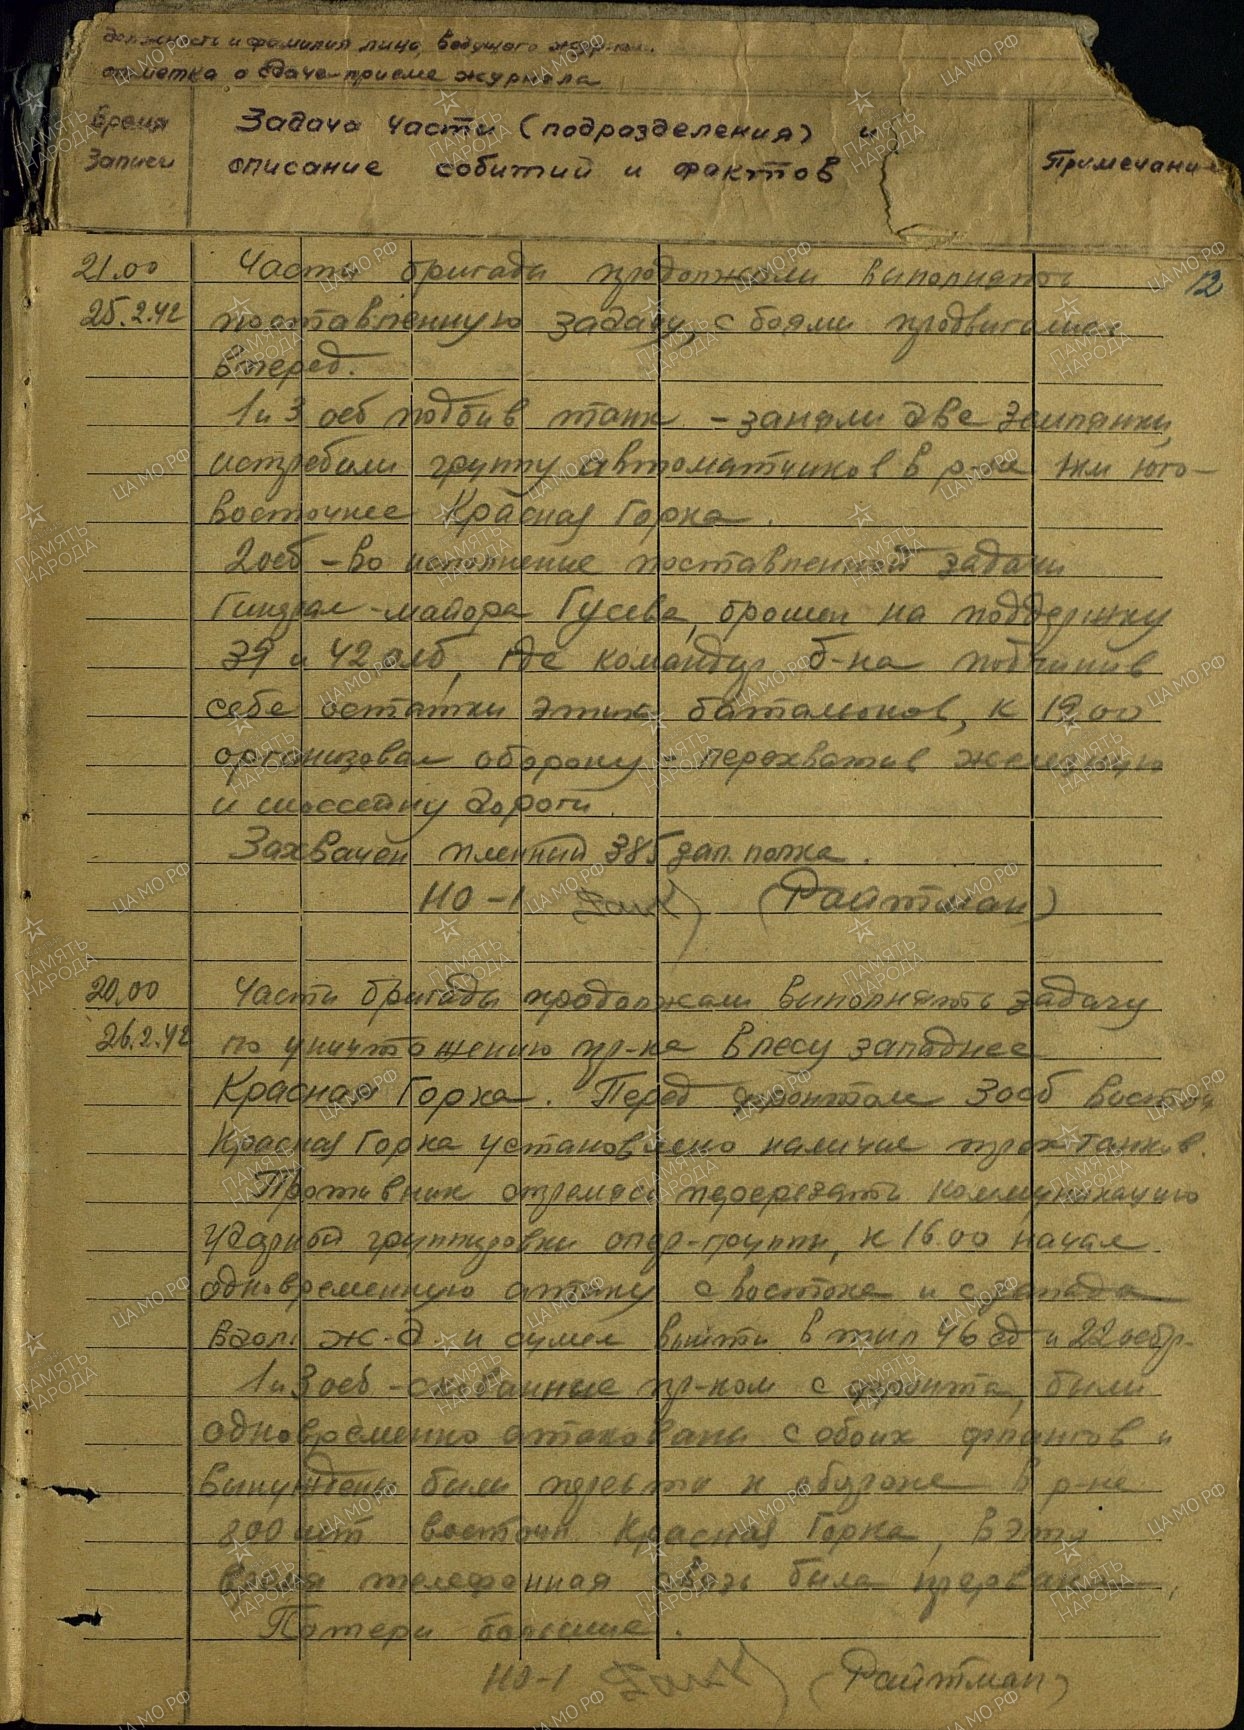 должность и фамилия лица, ведущего журнал.
отметка о сдаче-приеме журнала
Время Записи
Задача части (подразделения) и
описание событий и фактов
Примечание
12
21.00 Части бригады продолжали выполнять
25.2.42 поставленную задачу, с боями продвигались
вперед.
1 и 3 осб подбив танк - заняли две землянки,
истребили группу автоматчиков в р-не юго-
восточнее Красная Горка.
2 осб - во исполнение поставленной задачи
Генерал-майора Гусева, брошен на поддержку
39 и 42 олб, где командир б-на подчинив
себе остатки этих баталионов, к 19.00
организовал оборону - перехватив железную
и шоссейну дороги.
Захвачен пленный 385 зап. полка.
НО-1 (Райтман)
20.00 Части бригады продолжали выполнять задачу
26.2.42 по уничтожению пр-ка в лесу западнее
Красная Горка. Перед фронтом 3 осб восточ
Красная Горка установлено наличие трех танков.
Противник стремясь перерезать коммуникацию
ударной группировки опер-группы, к 16.00 начал
одновременную атаку с востока и с запада
вдоль ж-д и сумел выйти в тыл 46 сд и 22 осбр.
1 и 3 осб - скованные пр-ком с фронта, были
одновременно атакованы с обоих флангов и
вынуждены были перейти к обороне в р-не
200 мт восточн Красная Горка, в это
время телефонная связь была прервана.
Потери большие.
НО-1 (Райтман)